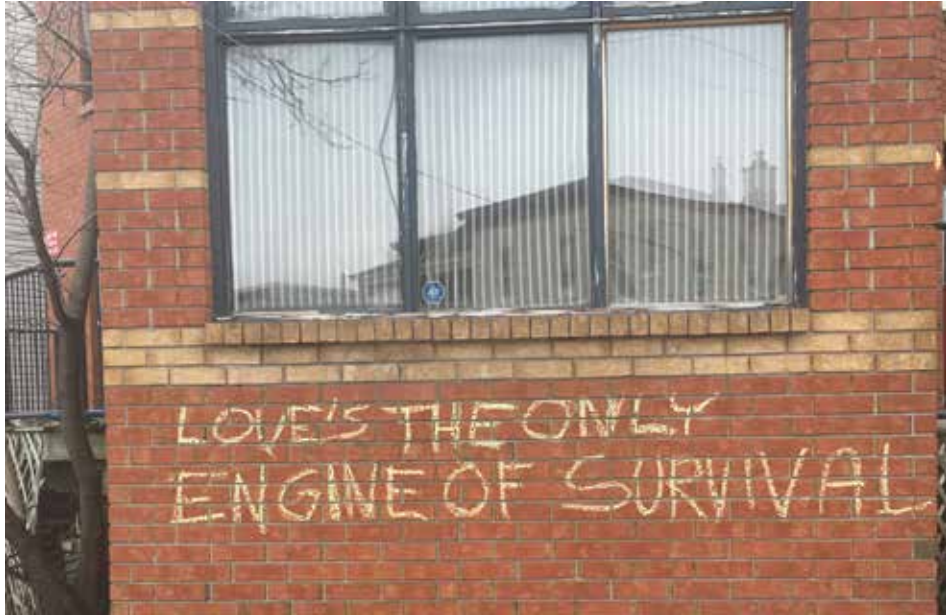 LOVE'S THE ONLY
ENGINE OF SURVIVAL